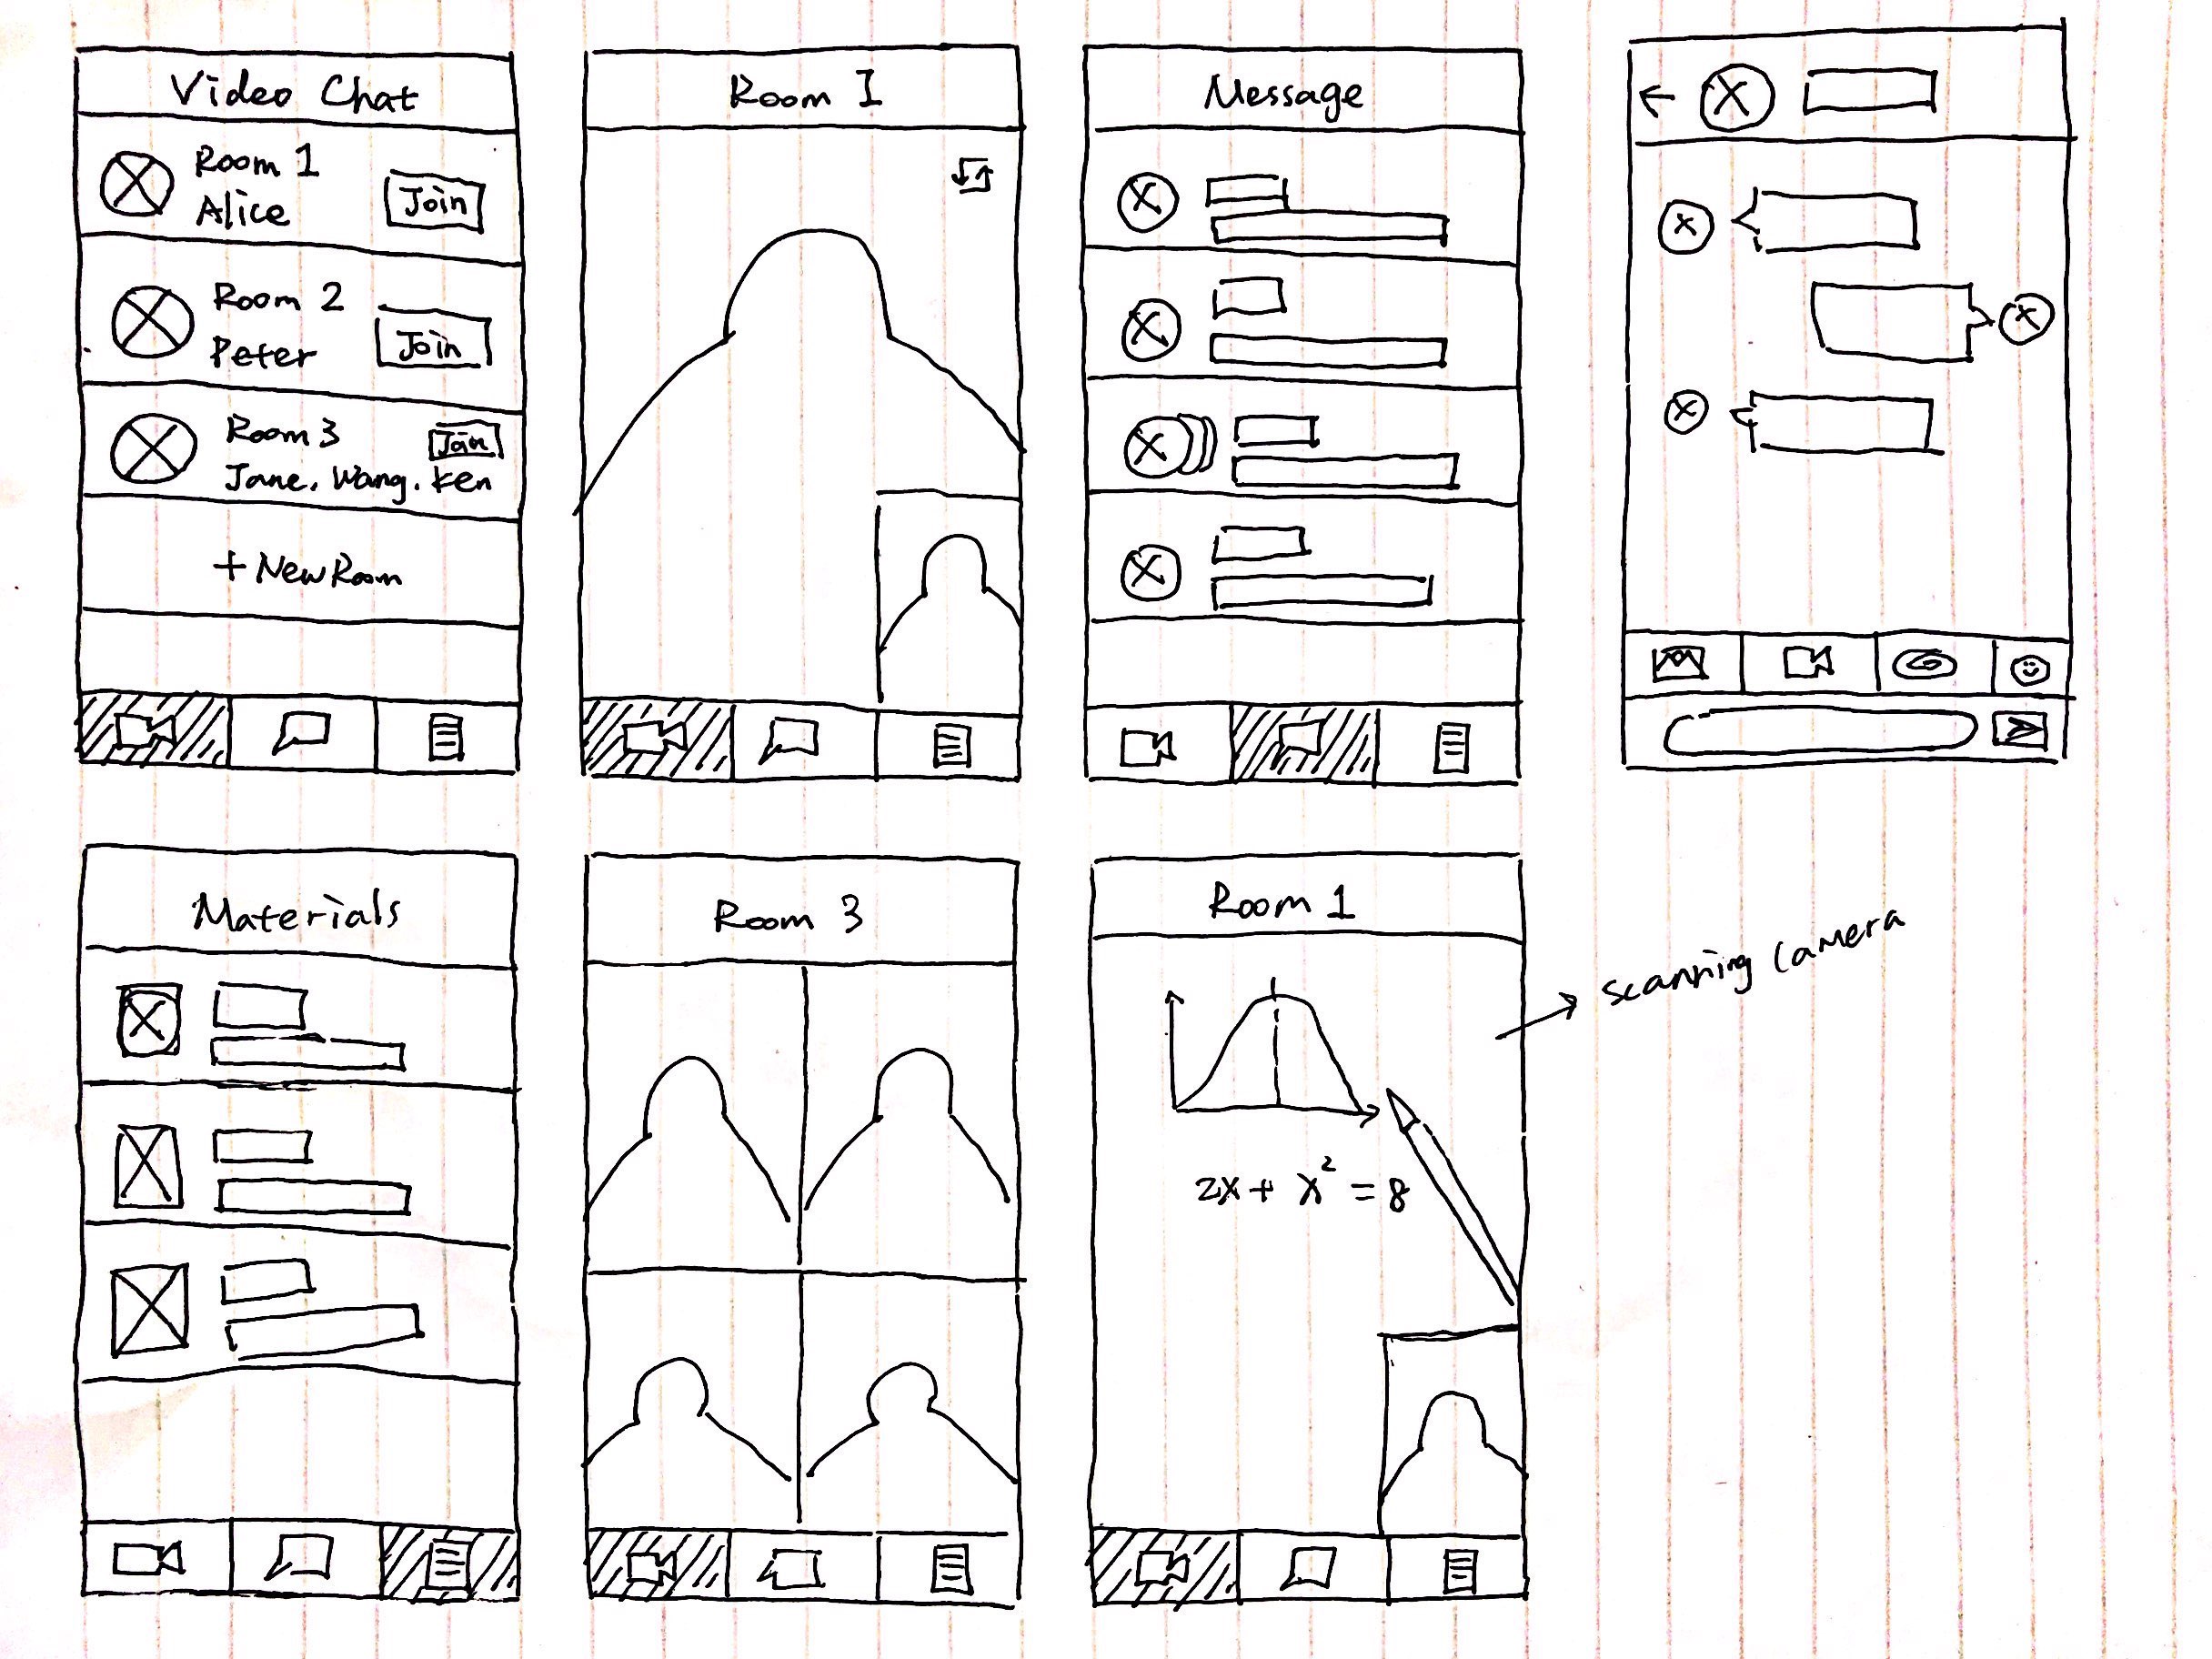 Video Chat
Room 1
Alice
Join
Room 2
Peter
Join
Room 3
Join
Jane, Wang, Ken
+ New Room
Room 1
Message
Materials
Room 3
Room 1
2x + x² = 8
scanning camera